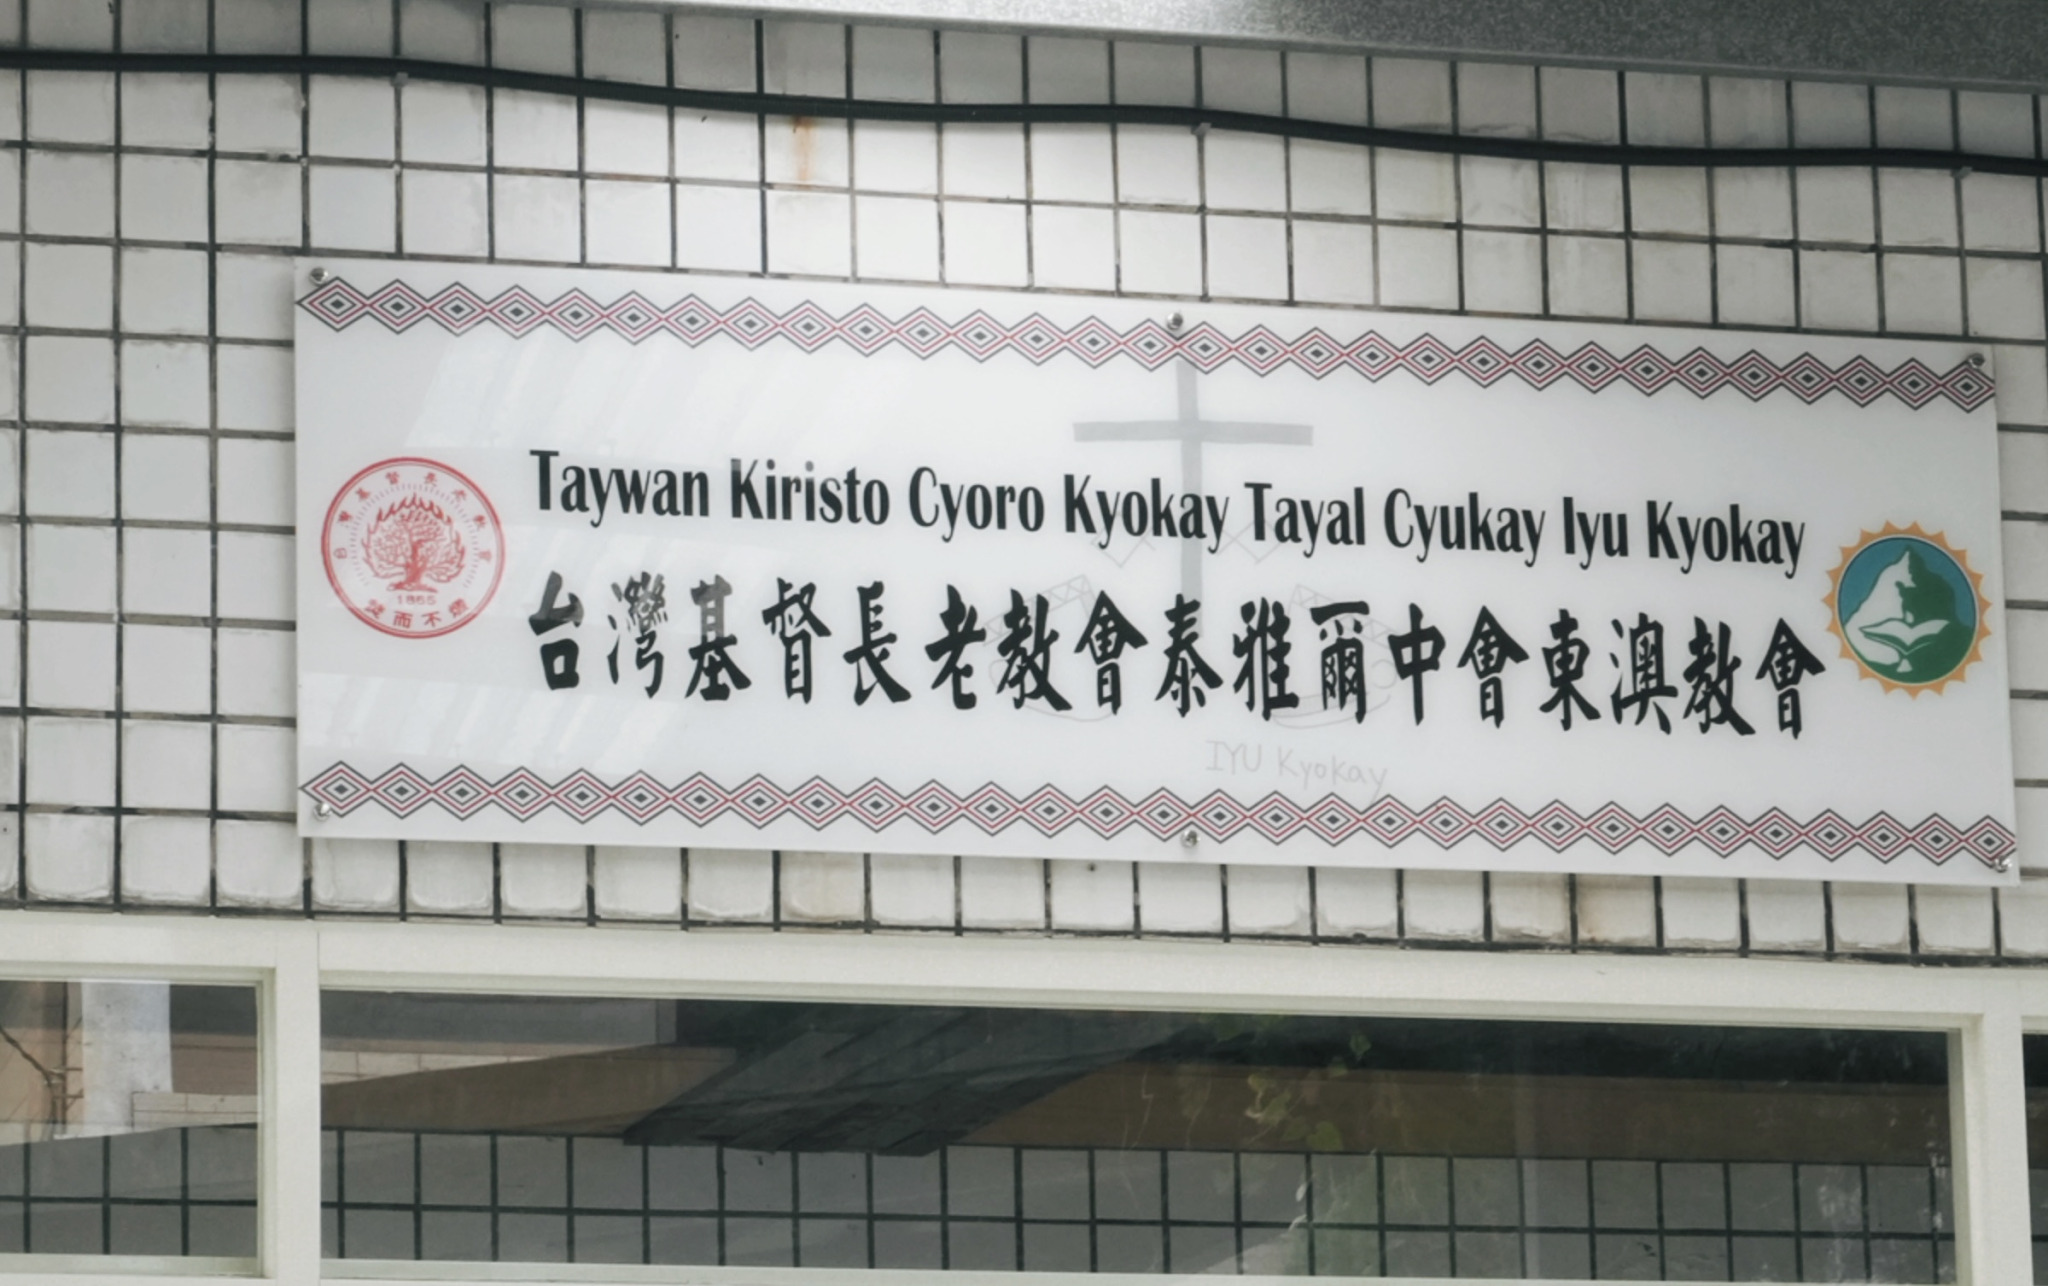 Taywan Kiristo Cyoro Kyokay Tayal Cyukay Iyu Kyokay
台灣基督長老教會泰雅爾中會東澳教會
台灣基督長老教會
1865
焚而不燬
IYU Kyokay